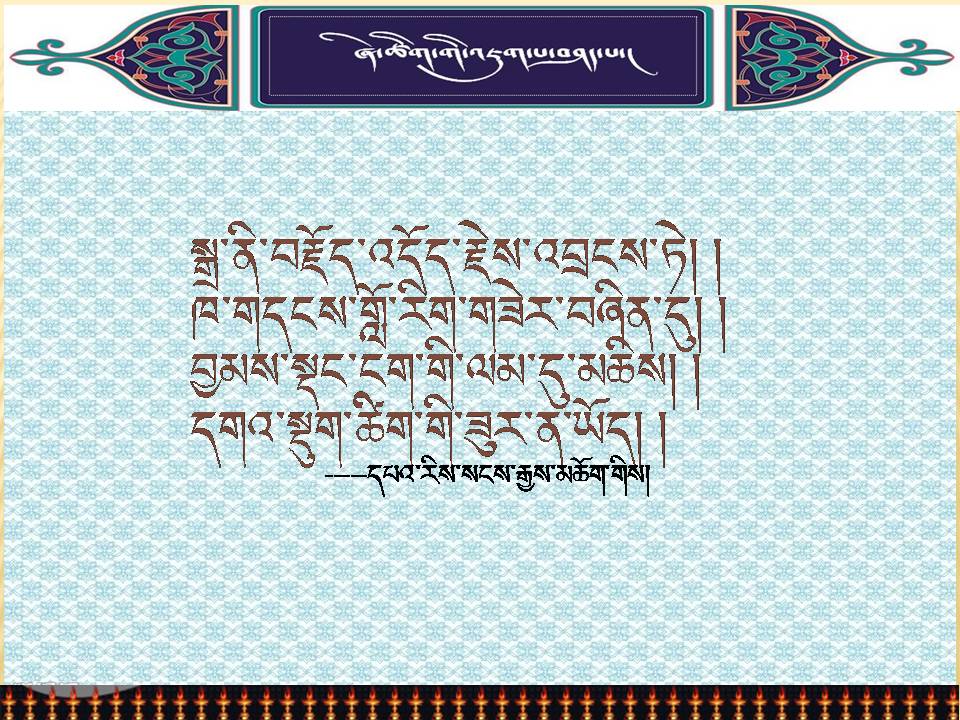 ཞེ་ཚིག་གི་འདག་པ་བཤད་པ།
སྒྲ་ནི་བརྗོད་འདོད་རྗེས་འབྲངས་ཏེ། །
ཁ་གདངས་གློ་རིག་གཟེར་བཞིན་དུ། །
བྱམས་སྡང་ངག་གི་ལམ་དུ་མཆིས། །
དགའ་སྡུག་ཚིག་གི་ཟུར་ན་ཡོད། །
----དཔའ་རིས་སངས་རྒྱས་མཆོག་གིས།